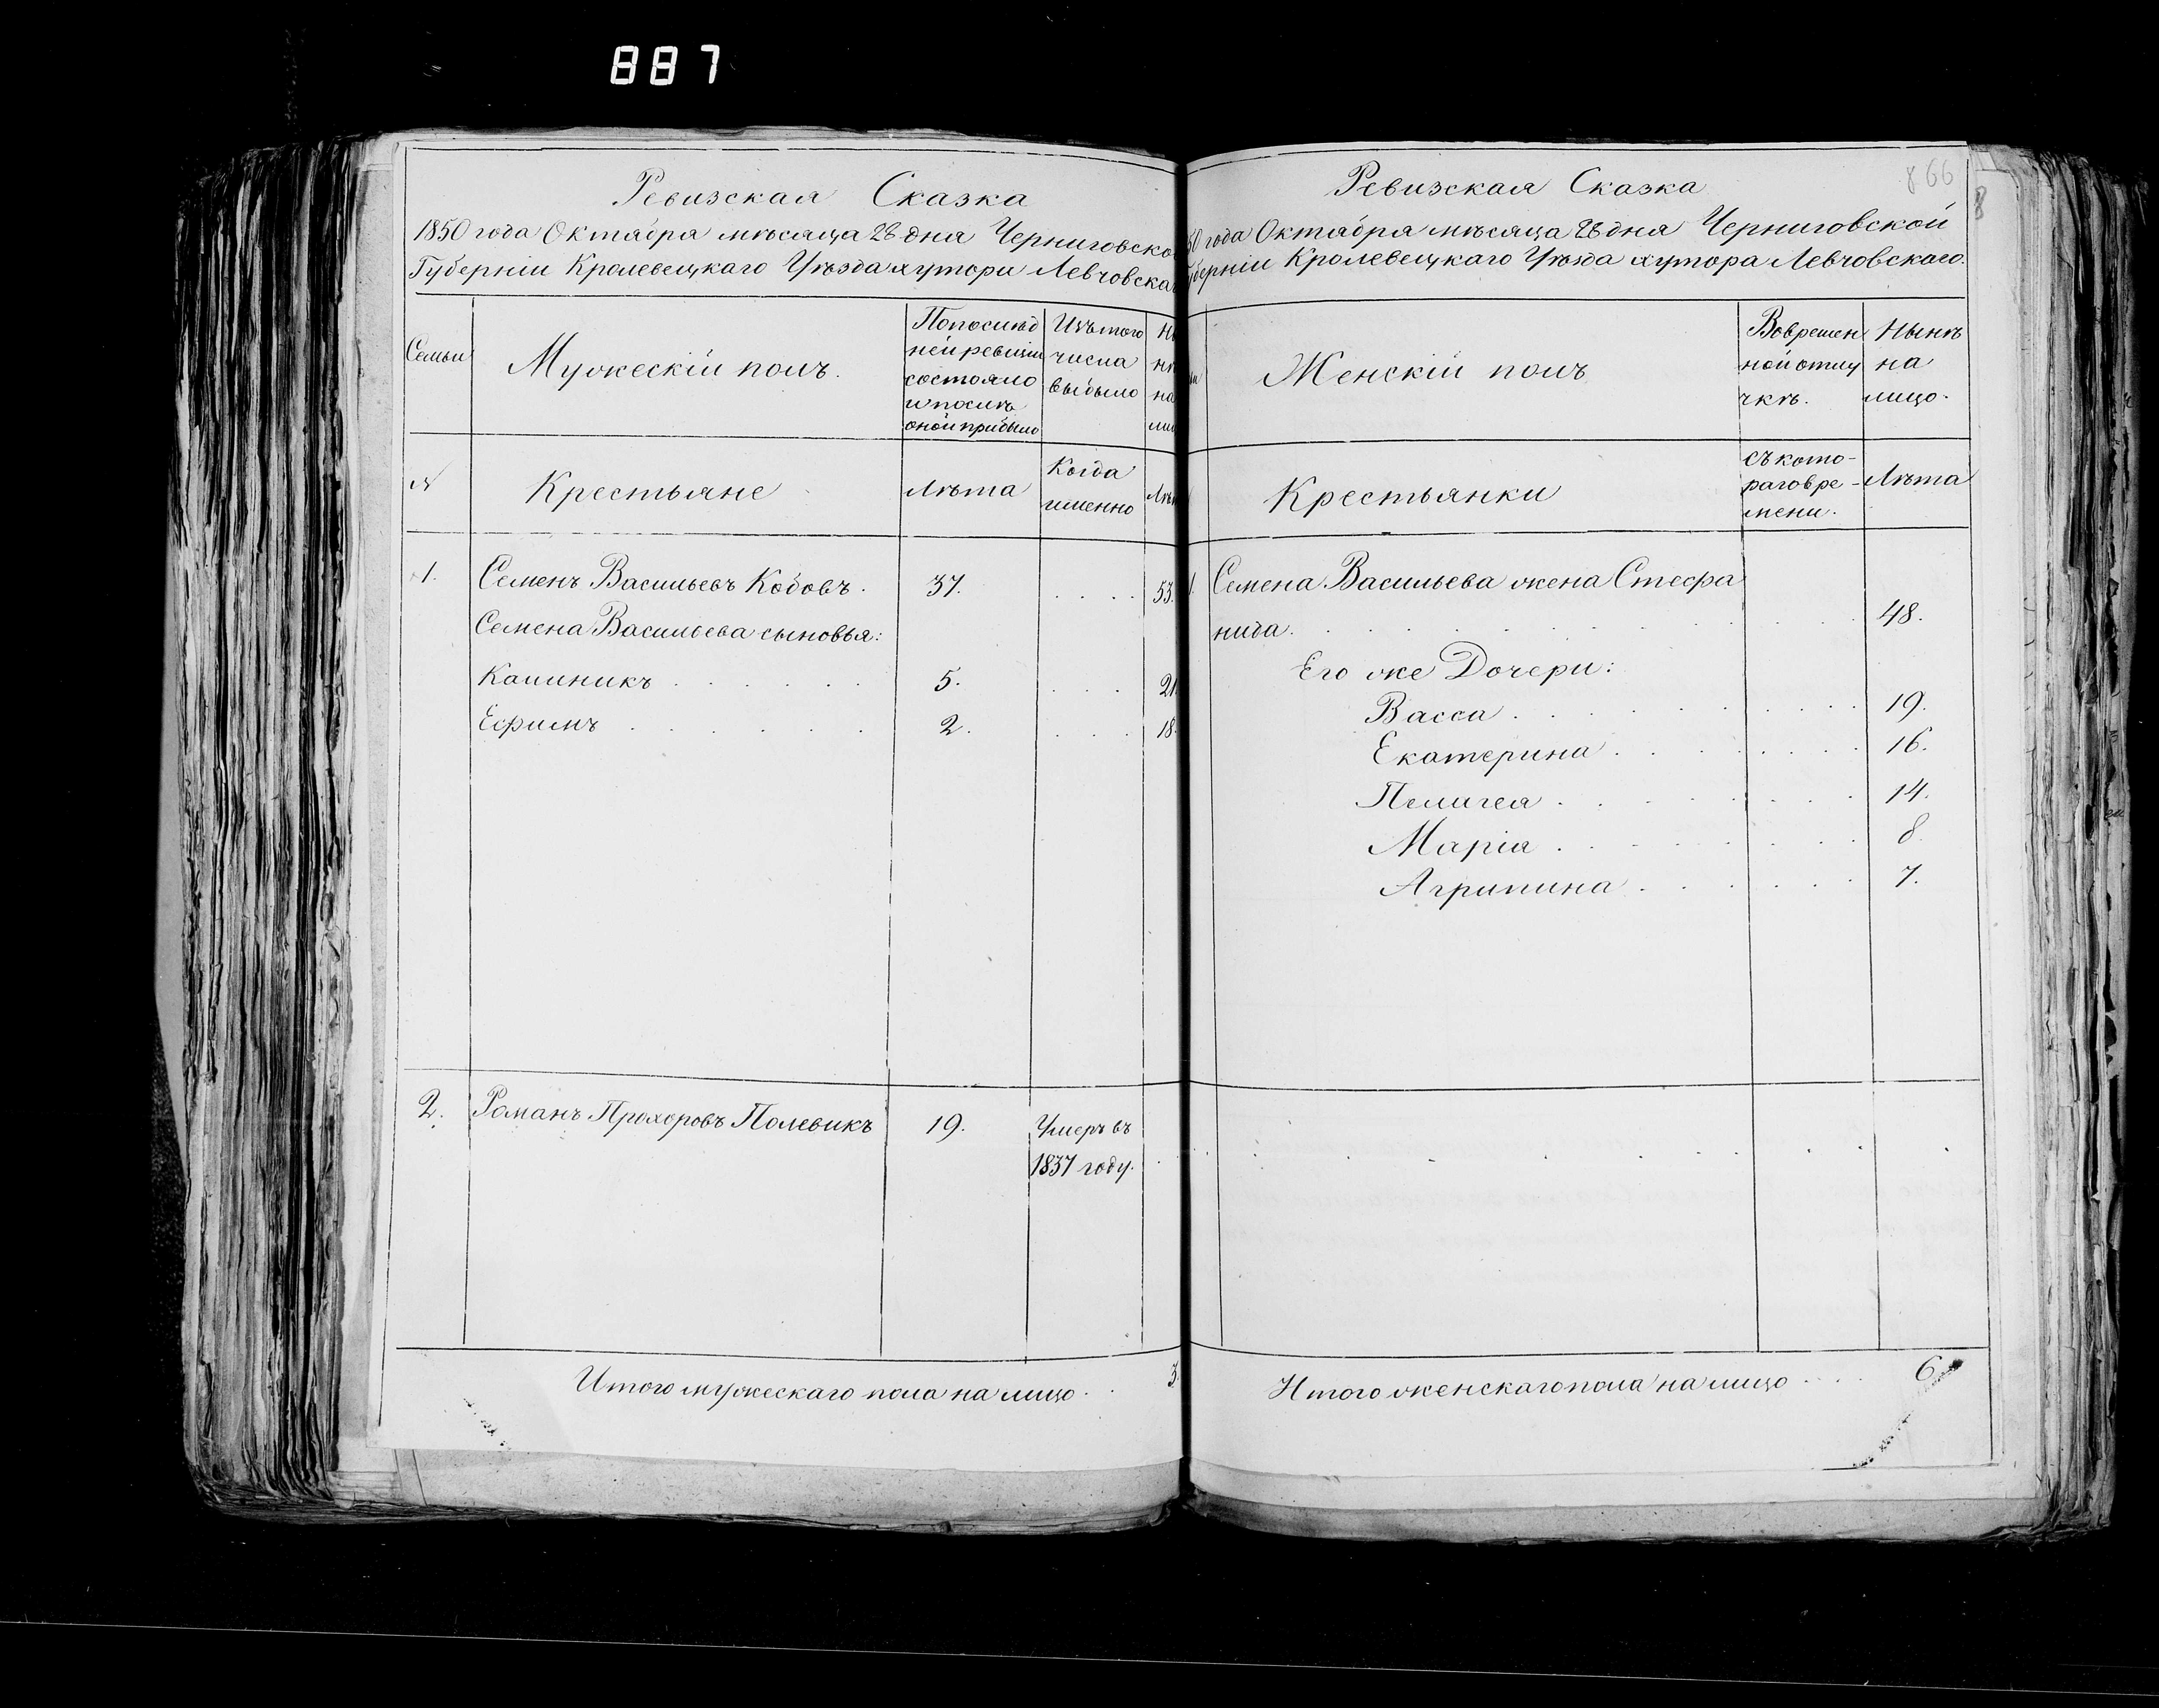 887
Ревизская Сказка
1850 года Октября мѣсяца 28 дня Черниговско
Губерніи Кролевецкаго Уѣзда хутора Левчовска
Семьи
Мужескій полъ.
По послѣд
ней ревизіи
состояло
и послѣ
оной прибыло
Изъ того
числа
выбыло
Ны
нѣ
на
лиц
№
Крестьяне
Лѣта
Когда
именно
Лѣт
1.
Семенъ Васильевъ Кобовъ.
37.
53.
Семена Васильева сыновья:
Калиникъ
5.
21
Ефимъ
2.
18.
2.
Романъ Прохоровъ Полевикъ
19.
Умеръ въ
1837 году.
Итого мужескаго пола на лицо
3.
866
Ревизская Сказка
50 года Октября мѣсяца 28 дня Черниговской
уберніи Кролевецкаго Уѣзда хутора Левчовскаго.
Женскій полъ
Во времен
ной отлу
чкѣ.
Нынѣ
на
лицо.
Крестьянки
съ кото-
раго вре-
мени.
Лѣта
1.
Семена Васильева жена Стефа
нида.
48.
Его же Дочери:
Васса
19.
Екатерина
16.
Пелагея
14.
Марія
8.
Агрипина
7.
Итого женскаго пола на лицо
6